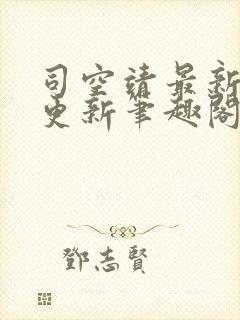 司空靖最新
更新笔趣閣
鄧志賢